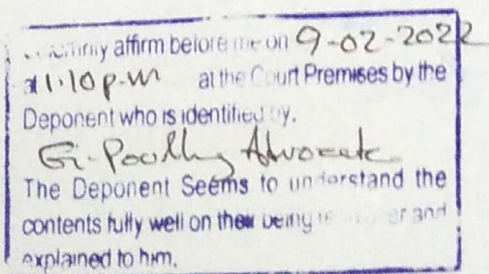 affirm before me on 9-02-2022
at 1:10 p.m at the Court Premises by the
Deponent who is identified by,
Advocate
The Deponent Seems to understand the
contents fully well on their being over and
explained to him.